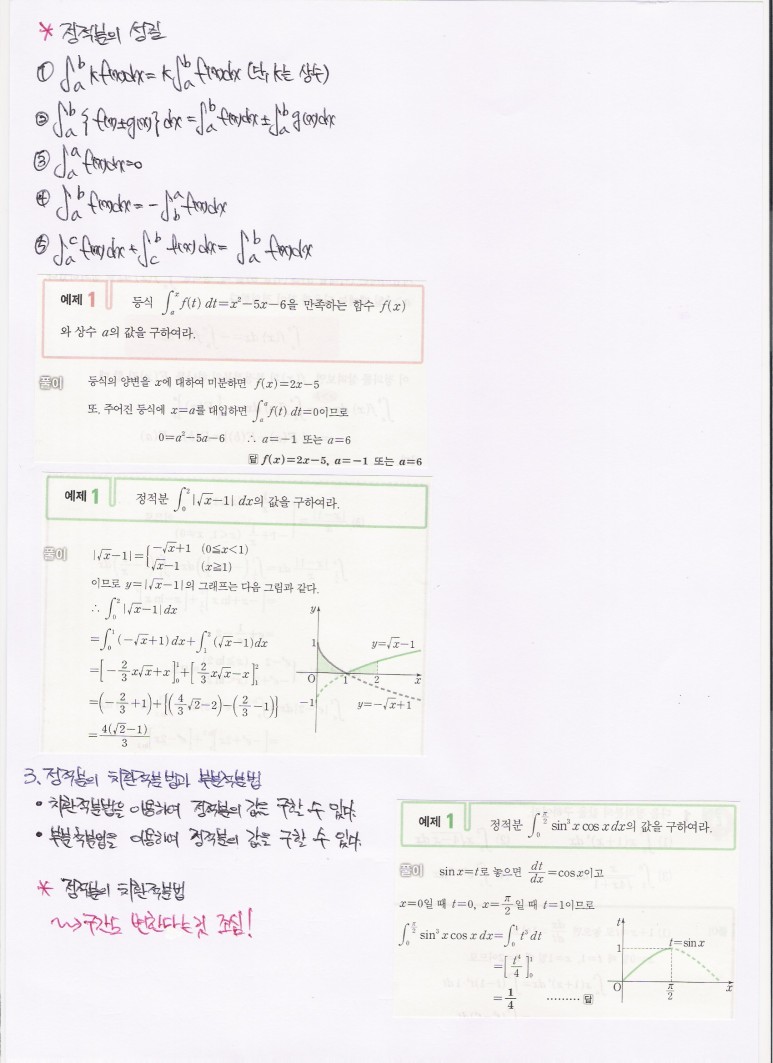 * 정적분의 성질
① ∫_a^b kf(x)dx = k∫_a^b f(x)dx (단, k는 상수)
② ∫_a^b {f(x)±g(x)}dx = ∫_a^b f(x)dx ± ∫_a^b g(x)dx
③ ∫_a^a f(x)dx=0
④ ∫_a^b f(x)dx = -∫_b^a f(x)dx
⑤ ∫_a^c f(x)dx + ∫_c^b f(x)dx = ∫_a^b f(x)dx
예제 1 등식 ∫_a^x f(t) dt=x²-5x-6을 만족하는 함수 f(x)
와 상수 a의 값을 구하여라.
풀이 등식의 양변을 x에 대하여 미분하면 f(x)=2x-5
또, 주어진 등식에 x=a를 대입하면 ∫_a^a f(t) dt=0이므로
0=a²-5a-6 ∴ a=-1 또는 a=6
답 f(x)=2x-5, a=-1 또는 a=6
예제 1 정적분 ∫_0^2 |√x-1| dx의 값을 구하여라.
풀이 |√x-1|={-√x+1 (0≦x<1)
√x-1 (x≧1)
이므로 y=|√x-1|의 그래프는 다음 그림과 같다.
∴ ∫_0^2 |√x-1|dx
=∫_0^1 (-√x+1)dx+∫_1^2 (√x-1)dx
=[-2/3 x√x+x]_0^1+[2/3 x√x-x]_1^2
=(-2/3+1)+{(4/3 √2-2)-(2/3-1)}
=4(√2-1)/3
y
1
y=√x-1
O 1 2 x
-1
y=-√x+1
3. 정적분의 치환적분법과 부분적분법
• 치환적분법을 이용하여 정적분의 값을 구할 수 있다.
• 부분적분법을 이용하여 정적분의 값을 구할 수 있다.
* 정적분의 치환적분법
~> 구간도 변한다는 것 조심!
예제 1 정적분 ∫_0^{π/2} sin³x cos x dx의 값을 구하여라.
풀이 sin x=t로 놓으면 dt/dx=cos x이고
x=0일 때 t=0, x=π/2일 때 t=1이므로
∫_0^{π/2} sin³x cos x dx=∫_0^1 t³ dt
=[t⁴/4]_0^1
=1/4 ……… 답
t
1
t=sin x
O π/2 x